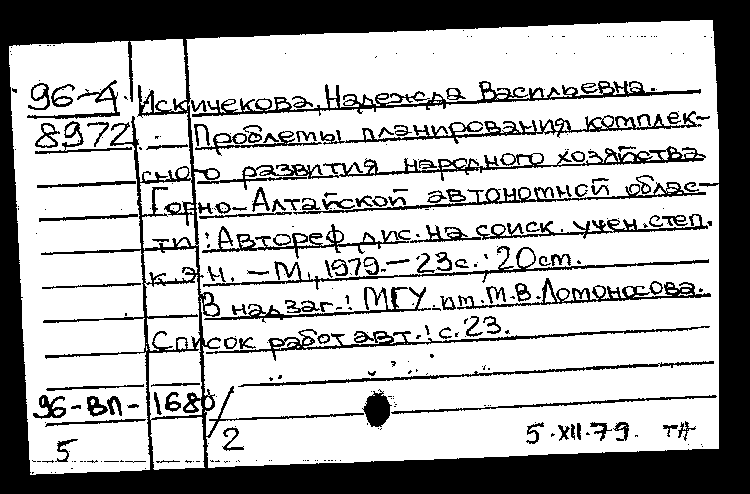 96-4 Искичекова, Надежда Васильевна.
8972 Проблемы планирования комплек-
сного развития народного хозяйства
Горно-Алтайской автономной облас-
ти: Автореф. дис. на соиск. учен. степ.
к.э.н. - М., 1979. - 23с.; 20см.
В надзаг.: МГУ им. М.В. Ломоносова.
Список работ авт.: с. 23.
96-ВП-1680/2
5
5.XII.79. ТА